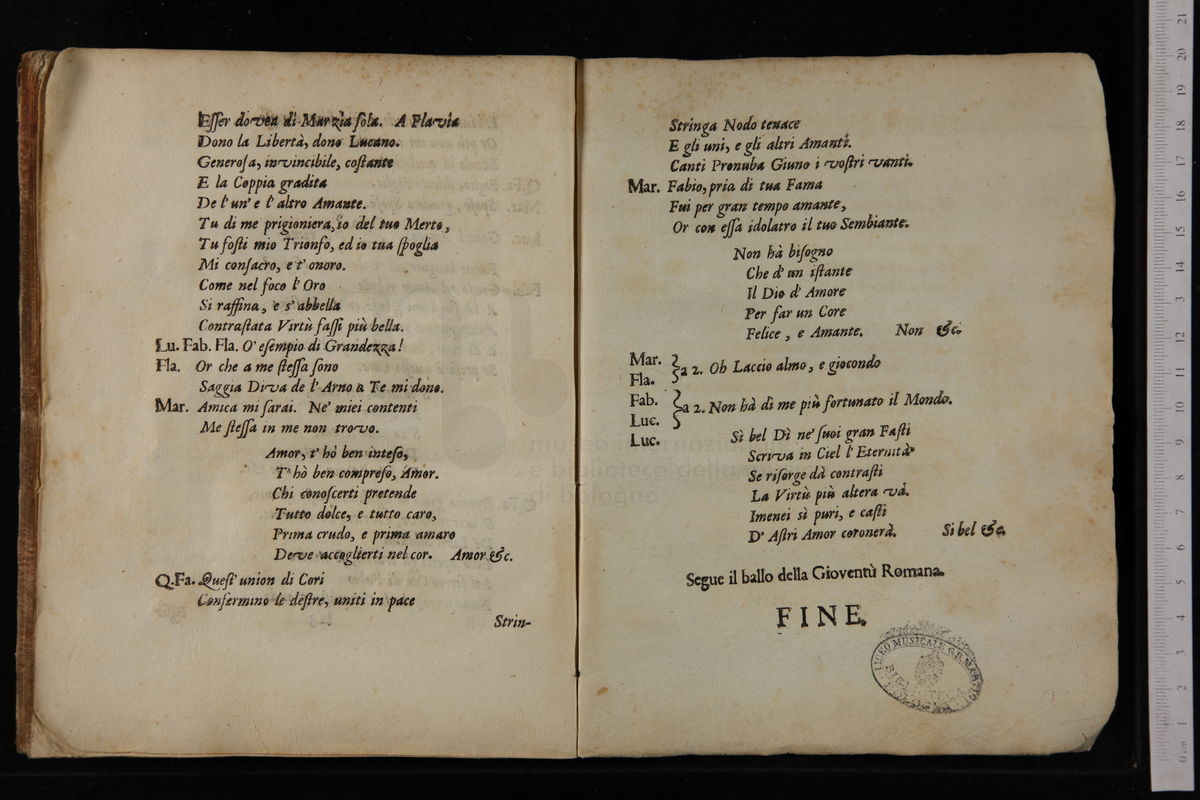 Eſſer dovea di Marzia ſola. A Flavia
Dono la Libertà, dono Lucano.
Generoſa, invincibile, coſtante
E la Coppia gradita
De l'un' e l'altro Amante.
Tu di me prigioniera, io del tuo Merto,
Tu foſti mio Trionfo, ed io tua ſpoglia
Mi conſacro, e t'onoro.
Come nel foco l'Oro
Si raffina, e s'abbella
Contraſtata Virtù faſſi più bella.
Lu. Fab. Fla. O' eſempio di Grandezza!
Fla. Or che a me ſteſſa ſono
Saggia Diva de l'Arno a Te mi dono.
Mar. Amica mi ſarai. Ne' miei contenti
Me ſteſſa in me non trovo.
Amor, t'hò ben inteſo,
T'hò ben compreſo, Amor.
Chi conoſcerti pretende
Tutto dolce, e tutto caro,
Prima crudo, e prima amaro
Deve accoglierti nel cor. Amor &c.
Q.Fa. Queſt' union di Cori
Confermino le deſtre, uniti in pace
Strin-
Stringa Nodo tenace
E gli uni, e gli altri Amanti.
Canti Pronuba Giuno i voſtri vanti.
Mar. Fabio, pria di tua Fama
Fui per gran tempo amante,
Or con eſſa idolatro il tuo Sembiante.
Non hà biſogno
Che d'un iſtante
Il Dio d'Amore
Per far un Core
Felice, e Amante. Non &c.
Mar.
Fla. a 2. Oh Laccio almo, e giocondo
Fab.
Luc. a 2. Non hà di me più fortunato il Mondo.
Luc. Sì bel Dì ne' ſuoi gran Faſti
Scriva in Ciel l'Eternità
Se riſorge dà contraſti
La Virtù più altera và.
Imenei sì puri, e caſti
D'Aſtri Amor coronerà. Si bel &c.
Segue il ballo della Gioventù Romana.
FINE.
LICEO MUSICALE G.B. MARTINI
museo internazio
e biblioteca della
di bologna